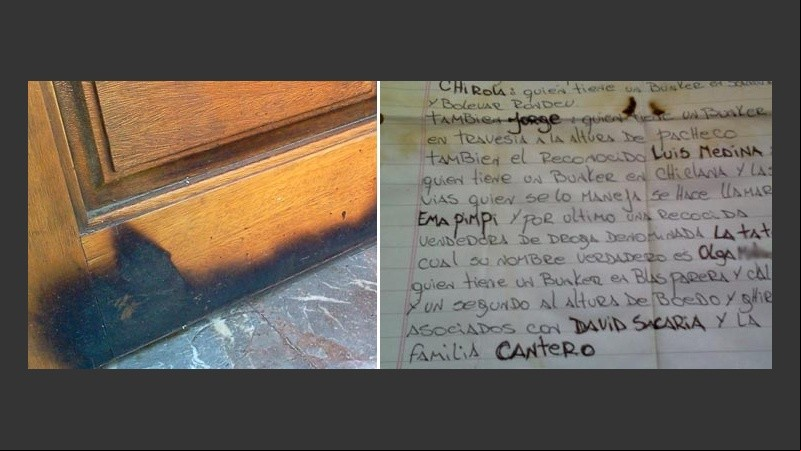 CHiROLA: quien tiene un BUNKER en
Y BOLEVAR RONDEU.
TAMBIEN JORGE: quien tiene un BUNKER
en TRAVESIA A LA ALTURA DE PACHECO
TAMBIEN el RECONOCIDO LUIS MEDINA:
quien tiene un BUNKER en CHICLANA Y LAS
VIAS quien se lo MANEJA se HACE LLAMAR
EMA PIMPI Y POR ULTIMO UNA RECOCIDA
VENDEDORA DE DROGA DENOMINADA LA TAT
CUAL SU NOMBRE VERDADERO ES OLGA
quien tiene un BUNKER en BLAS PARERA Y
Y UN SEGUNDO AL ALTURA DE BOEDO Y
ASOCIADOS CON DAVID SACARIA Y LA
FAMILIA CANTERO